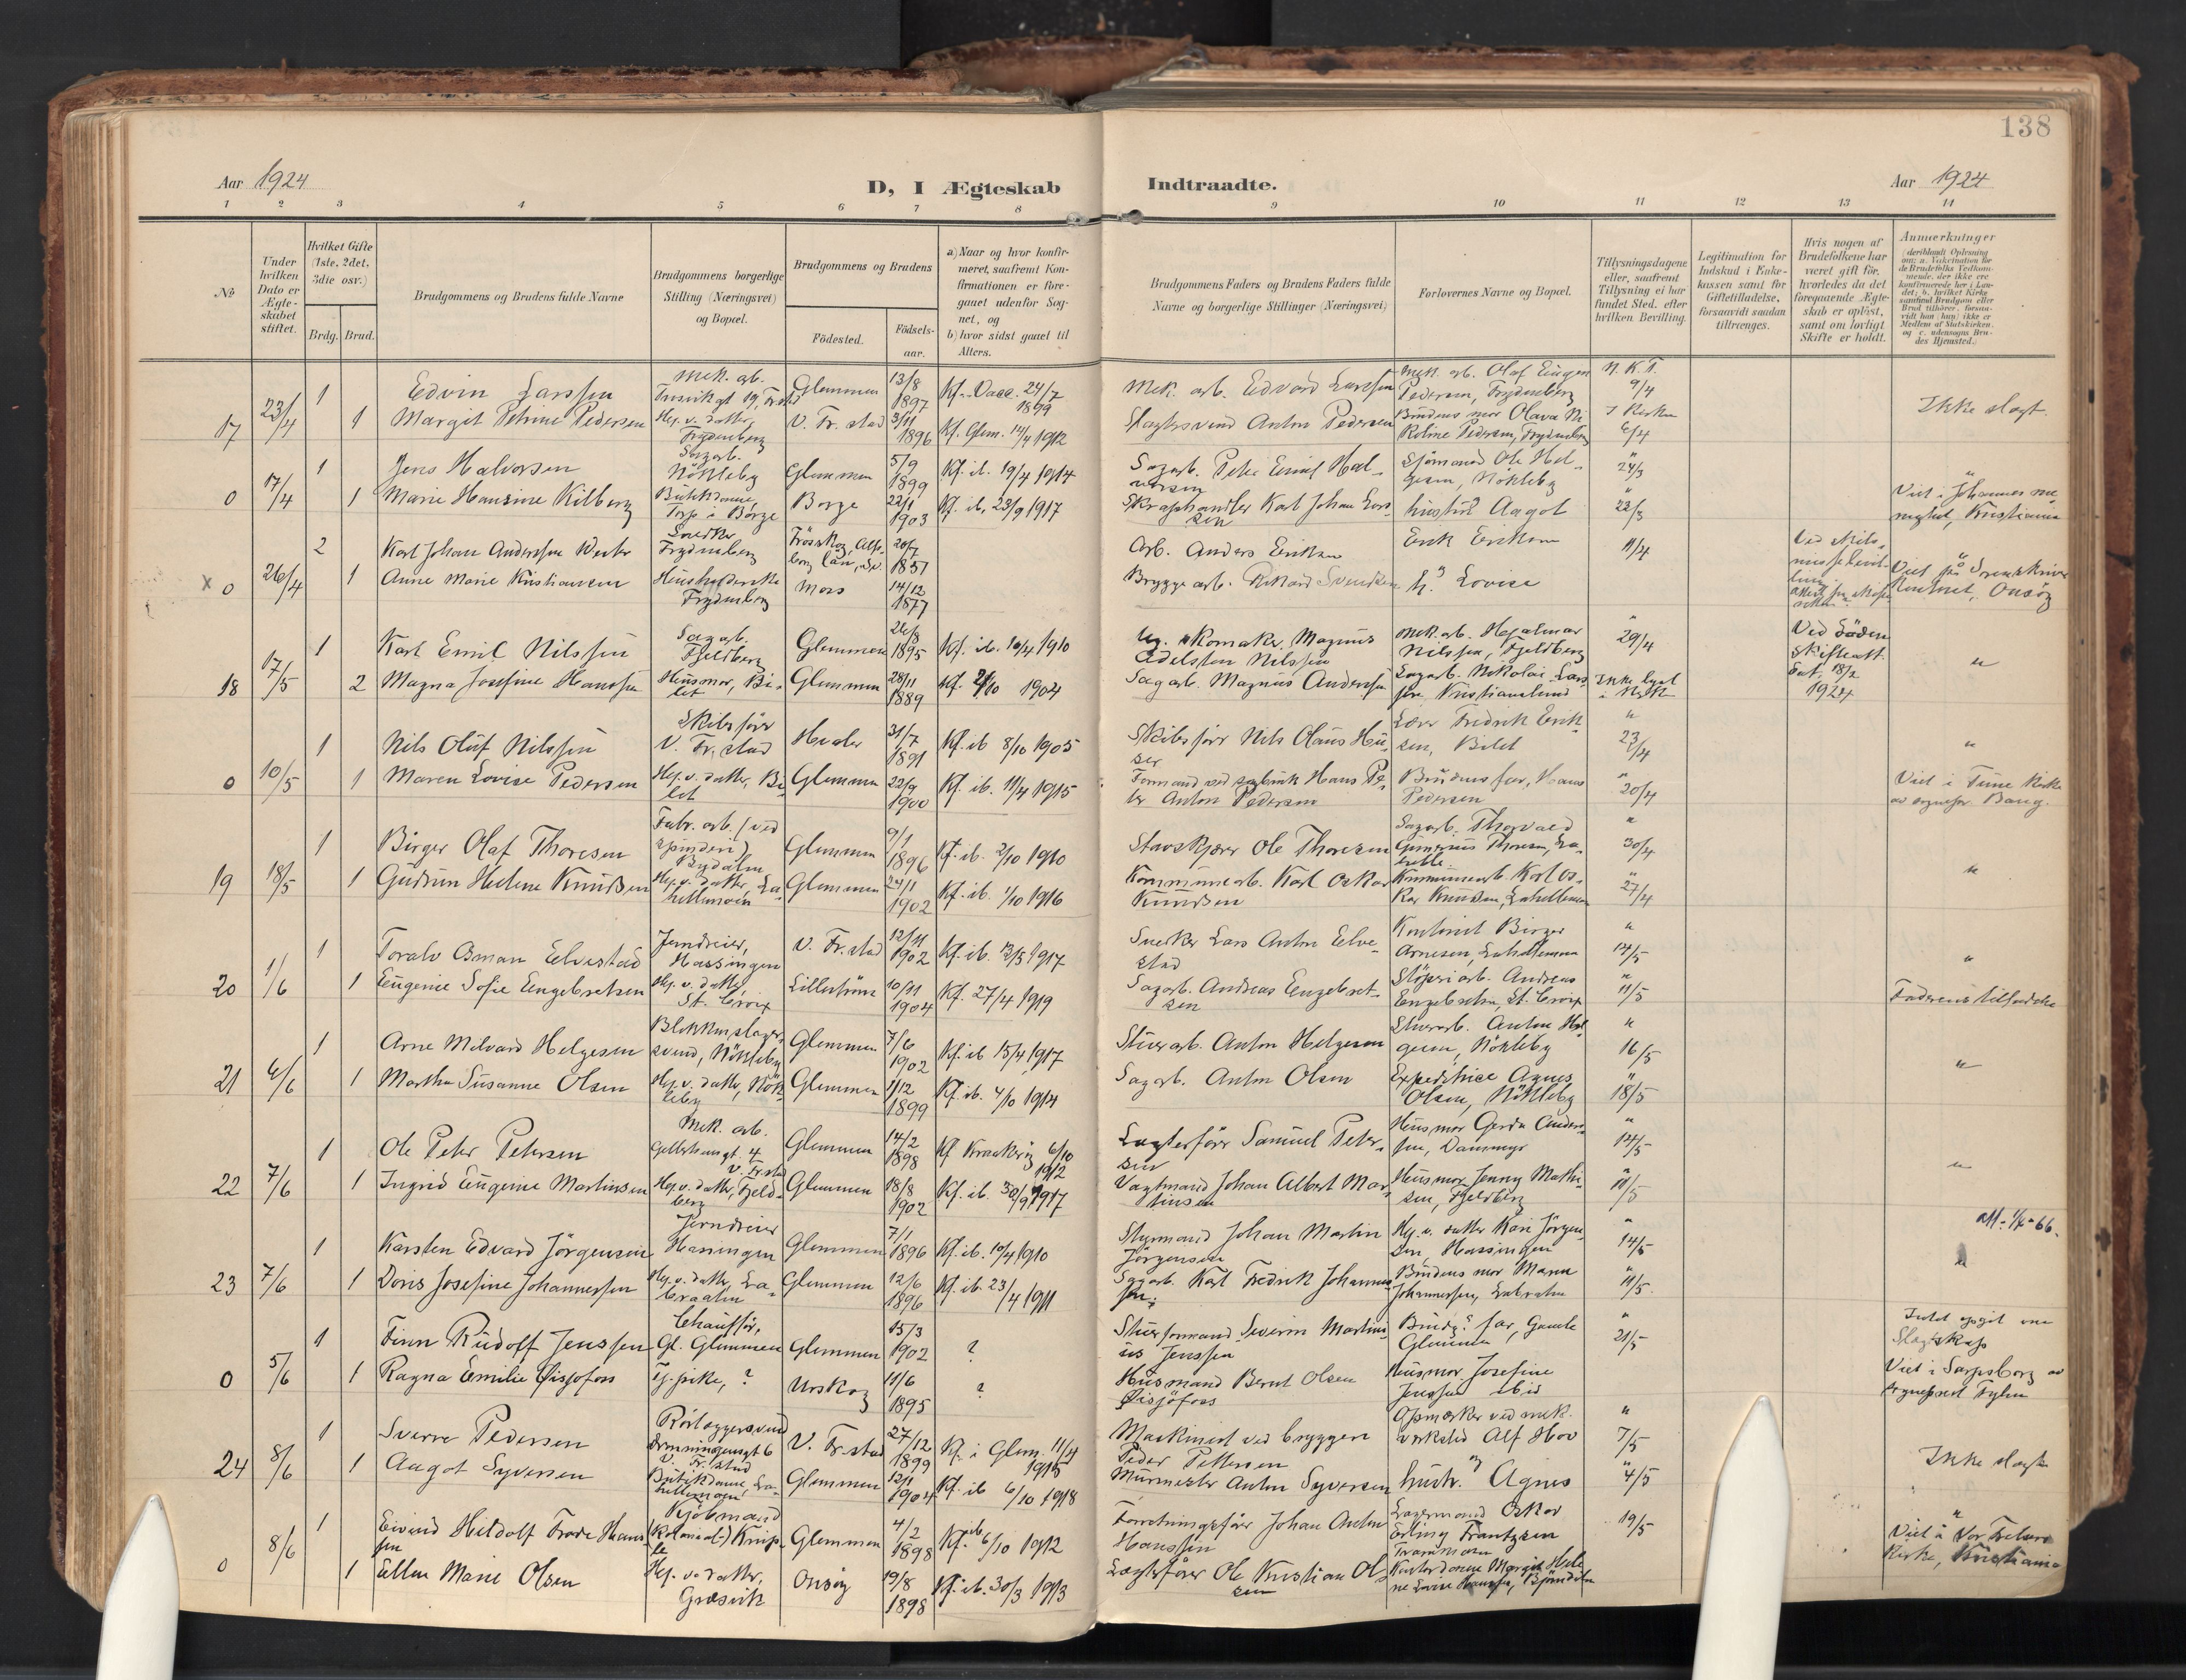 138
Aar 1924
D, I Ægteskab Indtraadte.
Aar 1924
1 2 3 4 5 6 7 8 9 10 11 12 13 14
№
Under hvilken Dato er Ægteskabet stiftet.
Hvilket Gifte (1ste, 2det, 3die osv.)
Brdg. Brud.
Brudgommens og Brudens fulde Navne
Brudgommens borgerlige Stilling (Næringsvei) og Bopæl.
Brudgommens og Brudens
Födested.
Födsels-aar.
a) Naar og hvor konfirmeret, saafremt Konfirmationen er foregaaet udenfor Sognet, og
b) hvor sidst gaaet til Alters.
Brudgommens Faders og Brudens Faders fulde Navne og borgerlige Stillinger (Næringsvei)
Forlovernes Navne og Bopæl.
Tillysningsdagene eller, saafremt Tillysning ei har fundet Sted, efter hvilken Bevilling.
Legitimation for Indskud i Enkekassen samt for Giftetilladelse, forsaavidt saadan tiltrænges.
Hvis nogen af Brudefolkene har været gift för, hvorledes da det foregaaende Ægteskab er oplöst, samt om lovligt Skifte er holdt.
Anmerkninger
17 23/4
1 Edvin Larssen
Mek. arb.
Glemmen 13/8 1897
Kf. Vacc. 24/7 1899
Mek. arb. Edvard Larssen
Mek. arb. Olaf Eugen Pedersen, Frydenberg
N. K. T. 9/4
Ikke slegt.
1 Margit Petrine Pedersen
Hj. v. datter, Frydenberg
V. Fr.stad 3/11 1896
Kf. Glem. 14/4 1912
Slagtersvend Anton Pedersen
Brudens mor Olava Nikoline Pedersen, Frydenberg
I Kirken 6/4
0 17/4
1 Jens Halvorsen
Sagarb. Nökleby
Glemmen 5/9 1899
Kf. ib. 19/4 1914
Sagarb. Peter Emil Halvorsen
Sjömand Ole Helgesen, Nökleby
" 24/3
"
1 Marie Hansine Kilberg
Butikdame, Torp i Borge
Borge 22/1 1903
Kf. ib. 23/9 1917
Skraphandler Karl Johan Larssen
hustru Aagot
" 22/3
Viet i Johannes menighet, Kristiania
x 0 26/4
2 Karl Johan Anderssen Wester
Snedker Frydenberg
20/7 1851
Arb. Anders Eriksen
Erik Eriksen
11/4
1 Anne Marie Kristiansen
Husholderske Frydenberg
Moss 14/12 1877
Brygge arb. Rikard Svendsen
h. Lovise
Viet på Sorenskriverkontoret, Onsöy
18 17/5
1 Karl Emil Nilssen
Sagarb. Fjeldberg
Glemmen 26/8 1895
Kf. ib. 10/4 1910
Skomaker Magnus Adelsten Nilssen
Mek. arb. Hjalmar Nilssen, Fjeldberg
" 29/4
Ved döden Skifteatt. Dat. 18/2 1924
"
2 Magna Josefine Hanssen
Husmor, Bilet
Glemmen 28/11 1889
Kf. 2/10 1904
Sagarb. Magnus Anderssen
Sagarb. Nikolai Larssen Kristianslund
Ikke lyst i kirken
0 10/5
1 Nils Oluf Nilssen
Skibsförer V. Fr.stad
Hvaler 31/7 1891
Kf. ib 8/10 1905
Skibsförer Nils Olaus Huser
Lærer Fredrik Eriksen, Bilet
" 23/4
"
1 Maren Lovise Pedersen
Hj. v. datter, Bilet
Glemmen 22/9 1900
Kf. ib. 11/4 1915
Formand ved sagbruk Hans Peter Anton Pedersen
Brudens far, Hans Pedersen
" 20/4
Viet i Tune Kirke av sognepr. Bang.
19 18/5
1 Birger Olaf Thoresen
Fabr. arb. (ved spinderi) Bydalen
Glemmen 9/1 1896
Kf. ib. 2/10 1910
Stavskjærer Ole Thoresen
Sagarb. Thorvald Gunerius Thoresen
" 30/4
"
1 Gudrun Helene Knudsen
Hj. v. datter, Lahellemoen
Glemmen 24/1 1902
Kf. ib. 1/10 1916
Kommunearb. Karl Oskar Knudsen
Kommunearb. Karl Oskar Knudsen, Lahellemoen
" 27/4
20 1/6
1 Toralv Osman Elvestad
Jerndreier, Hassingen
V. Fr.stad 12/11 1902
Kf. ib. 13/5 1917
Snedker Lars Anton Elvestad
Kontorist Birger Arnesen, Lahellemoen
" 14/5
"
1 Eugenie Sofie Engebretsen
Hj. v. datter St. Croix
Lilleström 10/11 1904
Kf. 27/4 1919
Sagarb. Andreas Engebretsen
Stöperiarb. Andreas Engebretsen, St. Croix
" 11/5
Faderens tilladelse
21 6/6
1 Arne Milvard Helgesen
Blikkenslagersvend, Nökleby
Glemmen 7/6 1902
Kf. ib 15/4 1917
Stuerarb. Anton Helgesen
Stuerarb. Anton Helgesen, Nökleby
" 16/5
"
1 Martha Susanne Olsen
Hj. v. datter, Nökleby
Glemmen 1/12 1899
Kf. ib. 4/10 1914
Sagarb. Anton Olsen
Expeditrice Agnes Olsen, Nökleby
" 18/5
22 7/6
1 Ole Peter Petersen
Mek. arb. V. Fr.stad
Glemmen 14/2 1898
Kf. Kraakeröy 6/10 1912
Lægterförer Samuel Petersen
Husmor Gerda Anderssen, Dammyr
" 14/5
"
1 Ingrid Eugenie Martinsen
Hj. v. datter, Fjeldberg
Glemmen 18/8 1902
Kf. ib. 30/9 1917
Vagtmand Johan Albert Martinsen
Husmor Jenny Mathisen, Fjeldberg
" 11/5
23 7/6
1 Karsten Edvard Jörgensen
Jerndreier Hassingen
Glemmen 7/1 1896
Kf. ib. 10/4 1910
Styrmand Johan Martin Jörgensen
Hj. v. datter Kari Jörgensen, Hassingen
" 14/5
"
1 Doris Josefine Johannessen
Hj. v. datter, Labraaten
Glemmen 12/6 1896
Kf. ib. 23/4 1911
Sagarb. Karl Fredrik Johannessen
Brudens mor Maren Johannessen, Labraaten
" 11/5
0 5/6
1 Finn Rudolf Jenssen
Chaufför, Gl. Glemmen
Glemmen 15/3 1902
?
Stuerformand Severin Martinius Jenssen
Brudg? far, Gamle Glemmen
" 21/5
Intet opgit om Slegtskap
1 Ragna Emilie Öisjofoss
Tj. pike, ?
Urskog 11/6 1895
?
Husmand Bernt Olsen Öisjöfoss
Husmor Josefine Jenssen ibid
Viet i Sarpsborg av sogneprest Fylen
24 8/6
1 Sverre Pedersen
Rörlæggersvend Dronningensgt 6 V. Fr.stad
V. Fr.stad 27/12 1899
Kf. i Glem. 11/4 1915
Maskinist ved bryggeri Peder Pettersen
Opmerker ved mek. verksted Alf Hov
" 7/5
Ikke slegt
1 Aagot Syversen
Butikdame, Lahellemoen
Glemmen 12/1 1904
Kf. ib 6/10 1918
Murmester Anton Syversen
hustr. Agnes
" 4/5
0 8/6
1 Eivind Hildolf Frode Hanssen
Kjöbmand (Kolonial-) Kniple
Glemmen 4/2 1898
Kf. ib 6/10 1912
Forretningsförer Johan Anton Hanssen
Lagermand Oskar Erling Frantzsen
19/5
"
1 Ellen Marie Olsen
Hj. v. datter, Græsvik
Onsöy 19/8 1898
Kf. ib. 30/3 1913
Lægterförer Ole Kristian Olsen
Viet i Vor Frelsers Kirke, Kristiania